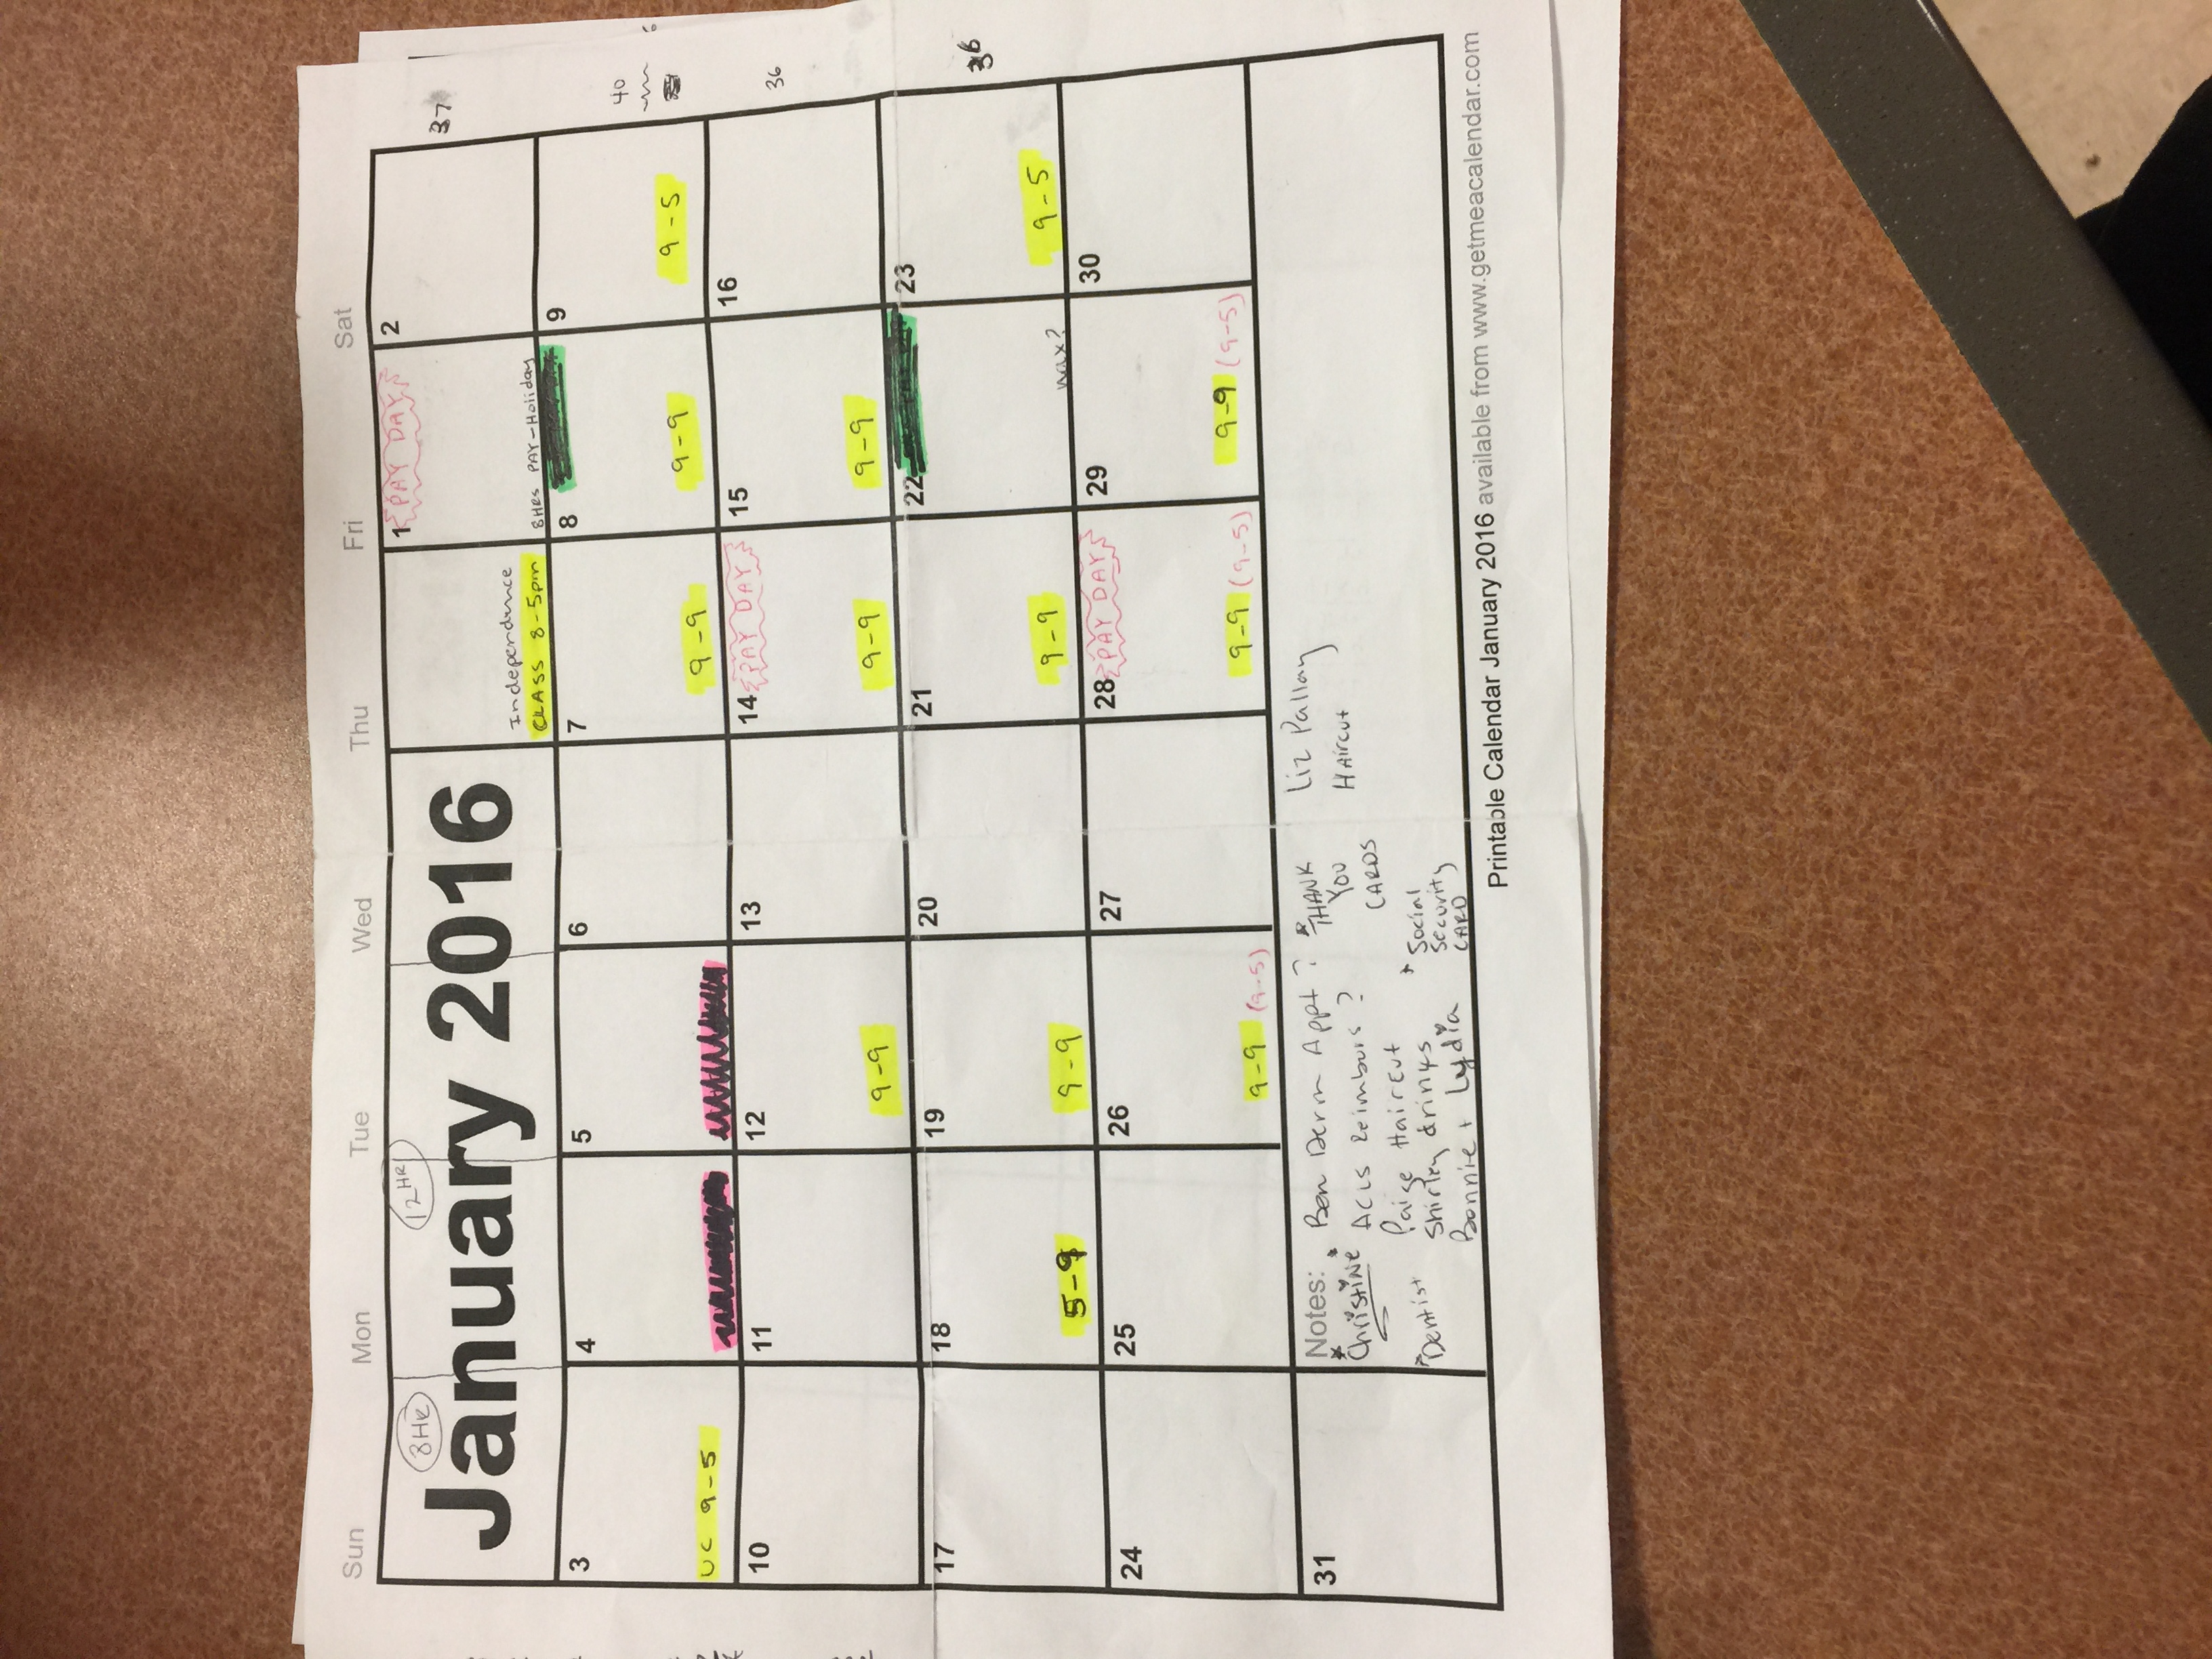 Sun Mon Tue Wed Thu Fri Sat
8HR 12HR
January 2016
Independence
CLASS 8-5pm
1 PAY DAY
8HRS PAY-Holiday
2
37
3
UC 9-5
4
5
6
7
9-9
8
9-9
9
9-5
40
10
11
12
9-9
13
14 PAY DAY
9-9
15
9-9
16
36
17
18
5-9
19
9-9
20
21
9-9
22
wax?
23
9-5
36
24
25
26
9-9 (9-5)
27
28 PAY DAY
9-9 (9-5)
29
9-9 (9-5)
30
31
Notes:
Christine
Dentist
Ben Derm Appt?
ACLS Reimburs?
Paige Haircut
Shirley drinks
Bonnie + Lydia
THANK
YOU
CARDS
Social
Security
CARD
Liz Pallay
Haircut
Printable Calendar January 2016 available from www.getmeacalendar.com